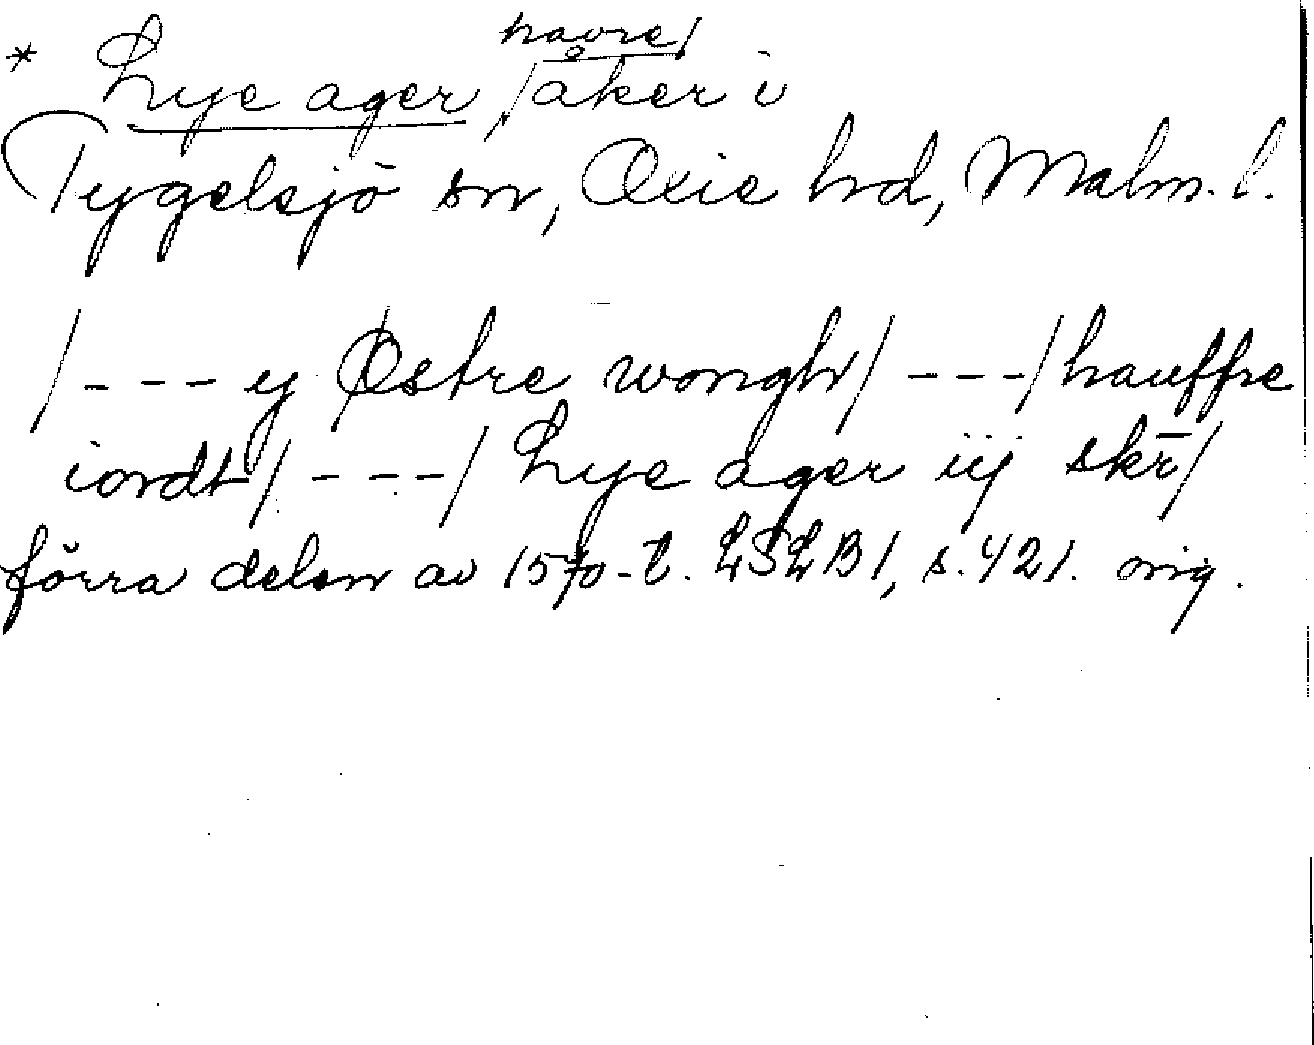 * Lye ager /havre/åker i
Tygelsjö sn, Oxie hd, Malm. l.
/--- y Østre wongh/ ---/ hauffre
iordt/ ---/ Lye ager iij skr̄/
förra delen av 1570-t. LSLB1, s. 421. orig.